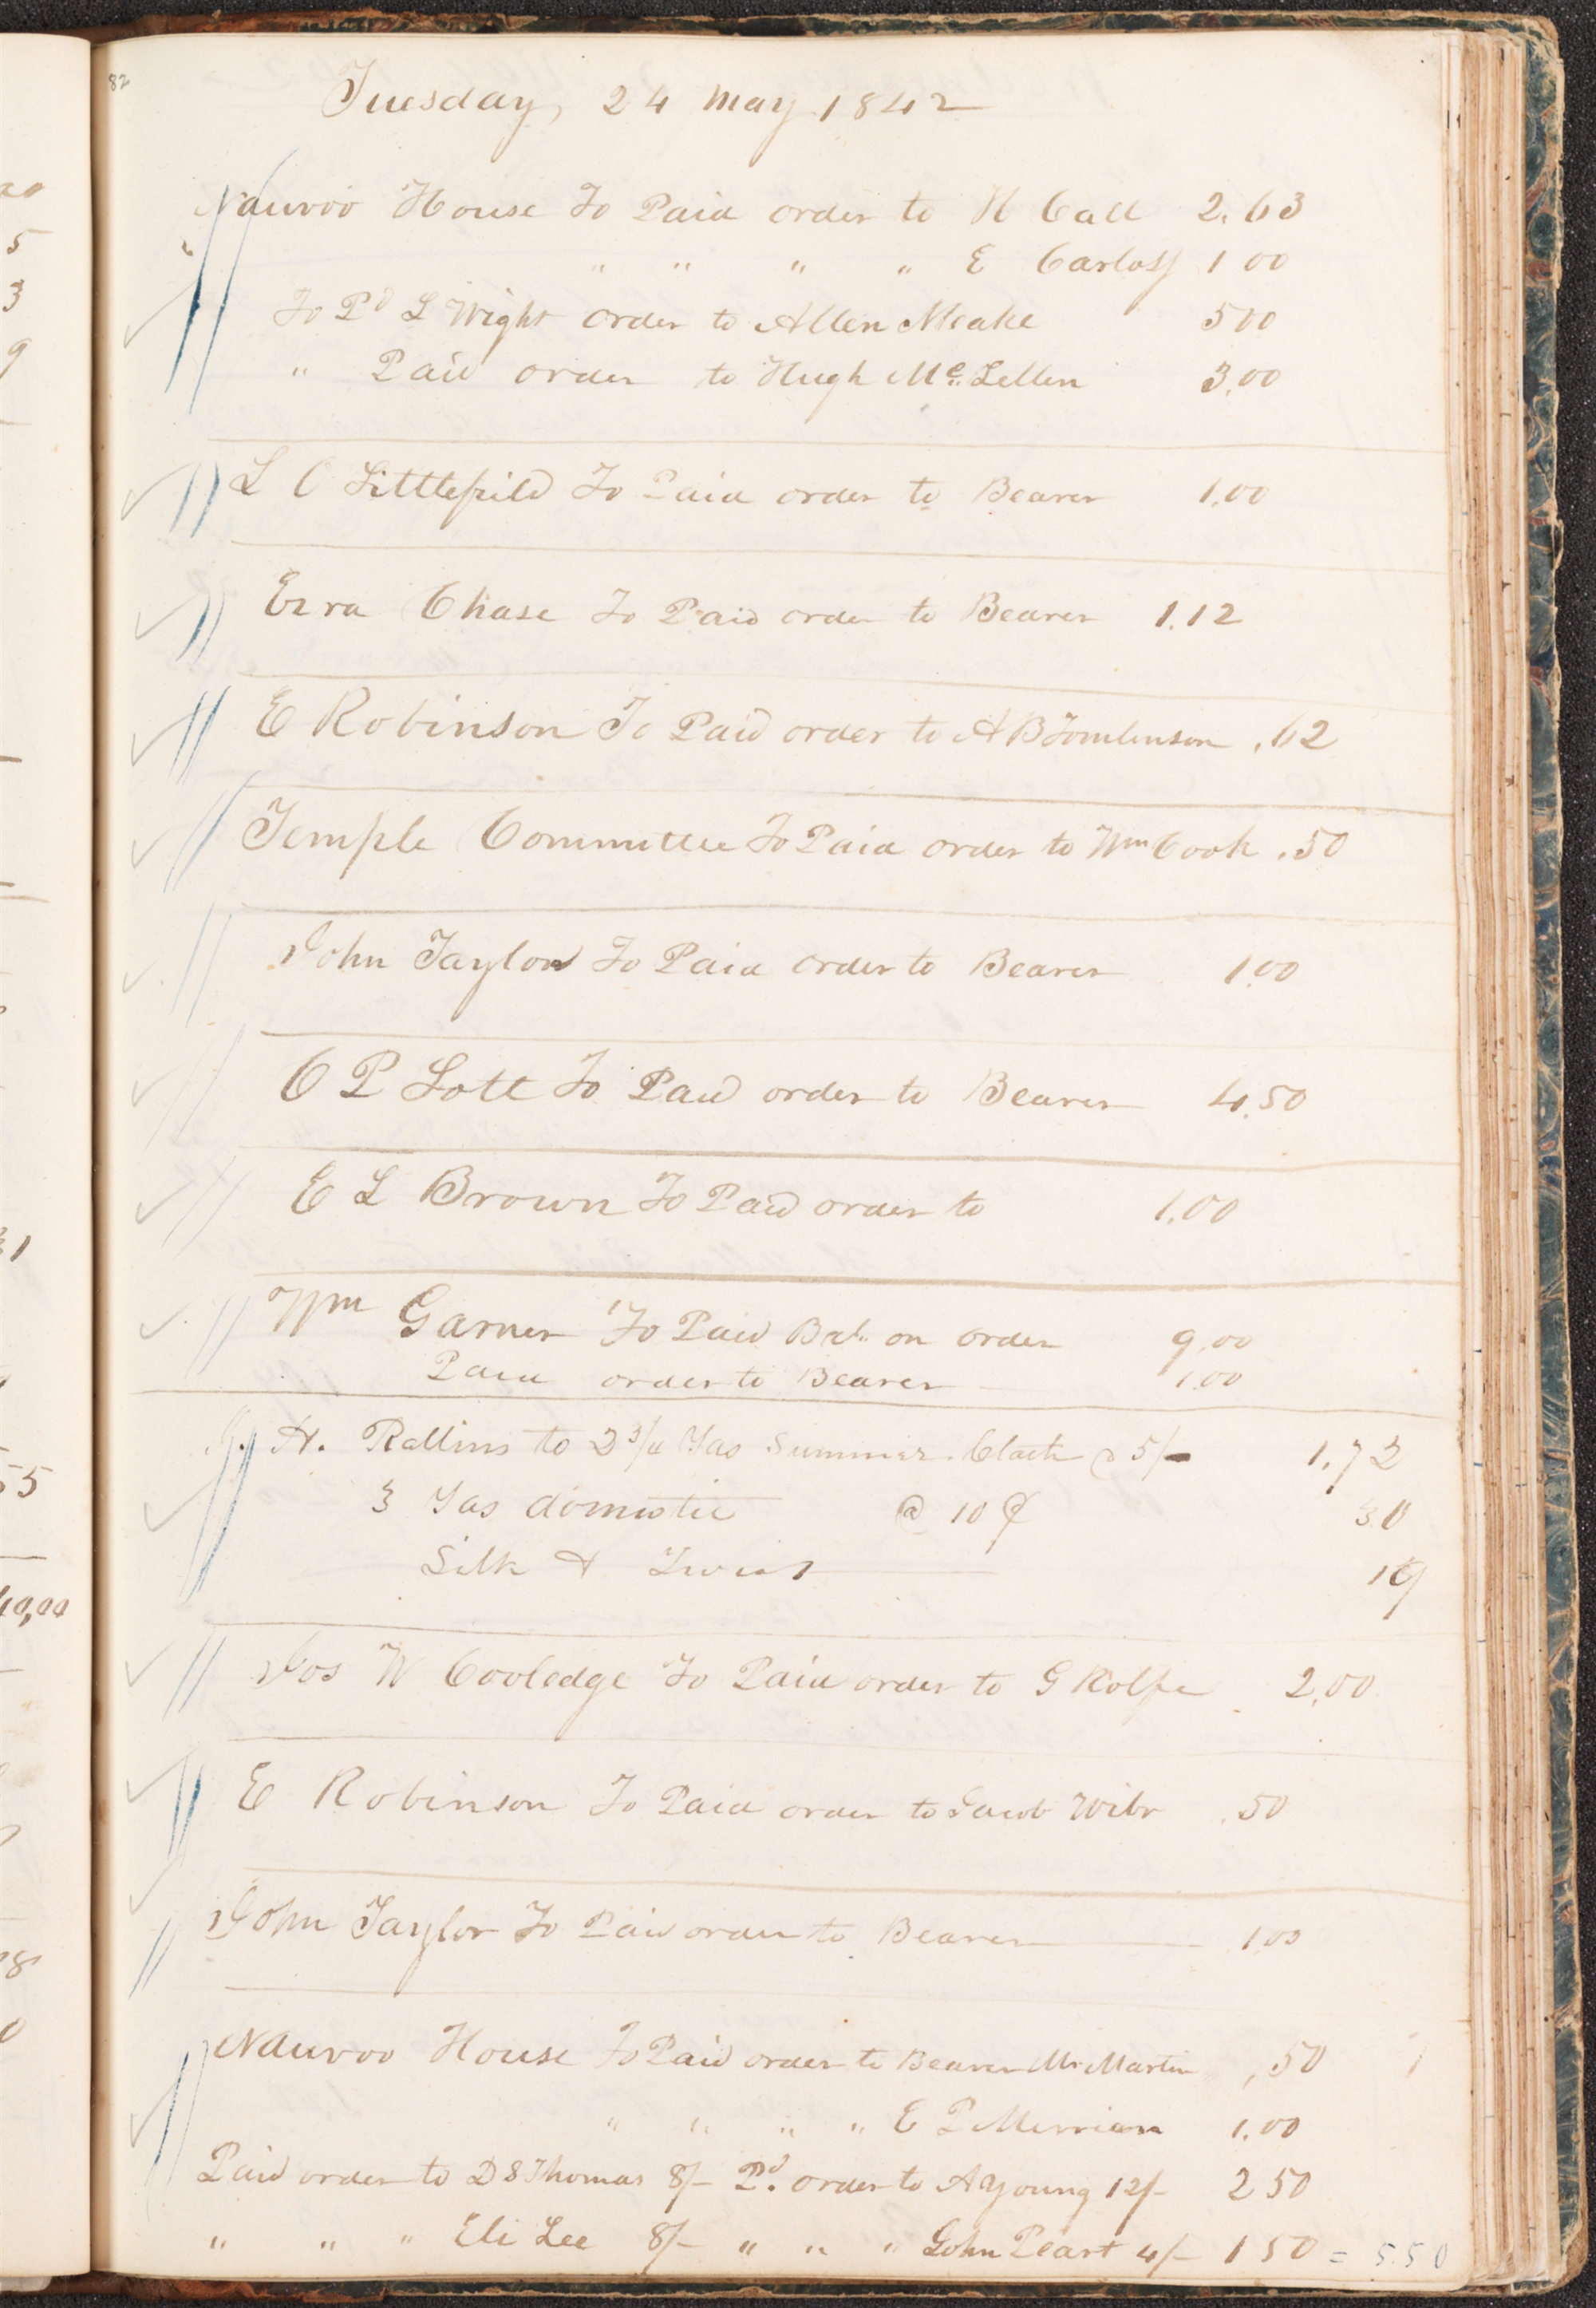 82
Tuesday, 24 May 1842
Nauvoo House To Paid order to H Call 2.63
" " " " E Carloss 1 00
To Pd L Wight order to Allen 500
" Paid order to Hugh Mc Lellen 3.00
L O Littlefeild To Paid order to Bearer 1.00
Ezra Chase To Paid order to Bearer 1.12
E Robinson To Paid order to A B Tomlinson .62
Temple Committee To Paid order to Wm Cook .50
John Taylor To Paid order to Bearer 1.00
C P Lott To Paid order to Bearer 4.50
E L Brown To Paid order to 1.00
Wm Garner To Paid Bal. on order 9.00
Paid order to Bearer 1.00
H. Rallins to 2 3/4 Yds Summer Cloth @ 5/- 1.72
3 Yds domestic @ 10 ¢ 30
Silk & Twist 19
Jos W Cooledge To Paid order to G Rolfe 2.00
E Robinson To Paid order to Jacob Wibr .50
John Taylor To Paid order to Bearer 1.00
Nauvoo House To Paid order to Bearer Mr Martin ,50
" " " " E P Merriam 1.00
Paid order to D S Thomas 8/- Pd. order to A Young 12/- 2 50
" " " Eli Lee 8/- " " " John Peart 4/- 1 50 = 5.50